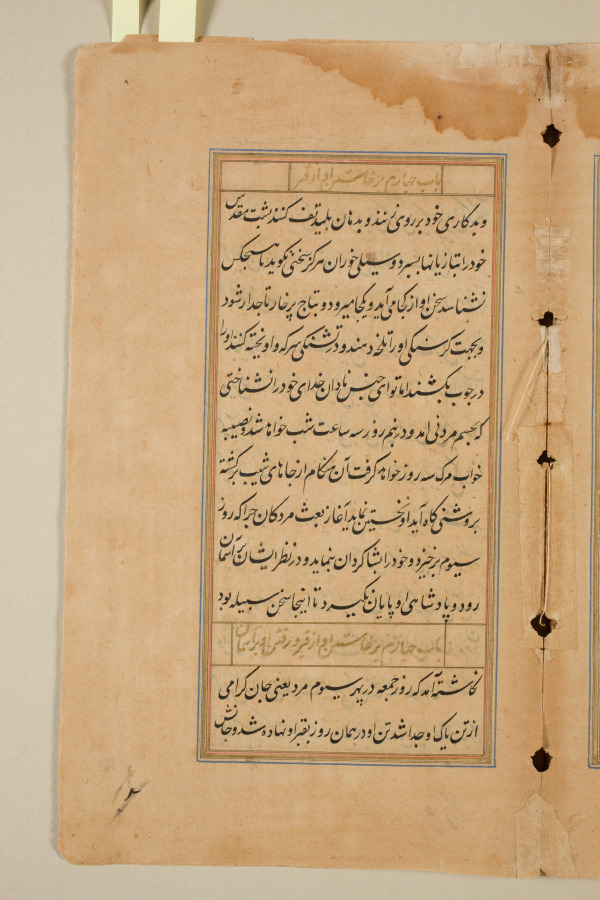 باب چهارم برخاستن او از قبر
و بدکاری خود بر روی زنند و بدهان پلید تف کنند پشت مقدس
خود را بتازیانها بسپرد و سیلی خوران هرگز سخنی نگوید تا هیچکس
نشناسد سخن او از کجا می آید و بکجا میرود و بتاج پر خار تاجدار شود
و بجهت گرسنگی او را تلخه دهند و در تشنگی سرکه و آویخته کنند او را
در چوب بکشند اما تو ای جنس نادان خدای خود را نشناختی
که بجسم مردنی آمد و در نیم روز سه ساعت شب خواهد شد و نصیبه
خواب مرگ سه روز خواهد گرفت آن هنگام از جاهای شیب برگشته
بروشنی گاه آید او نخستین نماید آغاز بعث مردگان چرا که روز
سیوم برخیزد و خود را بشاگردان بنماید و در نظر ایشان بر آسمان
رود و پادشاهی او پایان نگیرد تا اینجا سخن سبیله بود
باب چهارم برخاستن او از قبر و رفتن او بر آسمان
نگاشته آمد که روز جمعه در پهر سیوم مرد یعنی جان گرامی
از تن پاک او جدا شد تن او در همان روز بقبر او نهاده شد و جانش